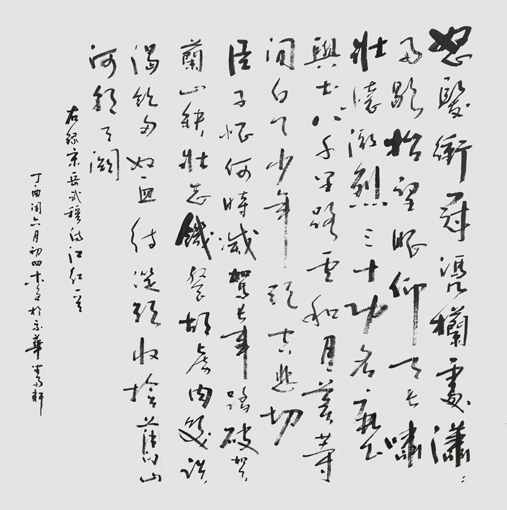 怒髮衝冠憑欄處瀟ミ
雨歇抬望眼仰天長嘯
壯懷激烈三十功名塵
與土八千里路雲和月莫等
閒白了少年頭空悲切
臣子恨何時滅駕長車踏破賀
蘭山缺壯志饑餐胡虜肉笑談
渴飲匈奴血待從頭收拾舊山
河朝天闕
右錄宋岳武穆滿江紅一首
丁酉閏六月初四於京華